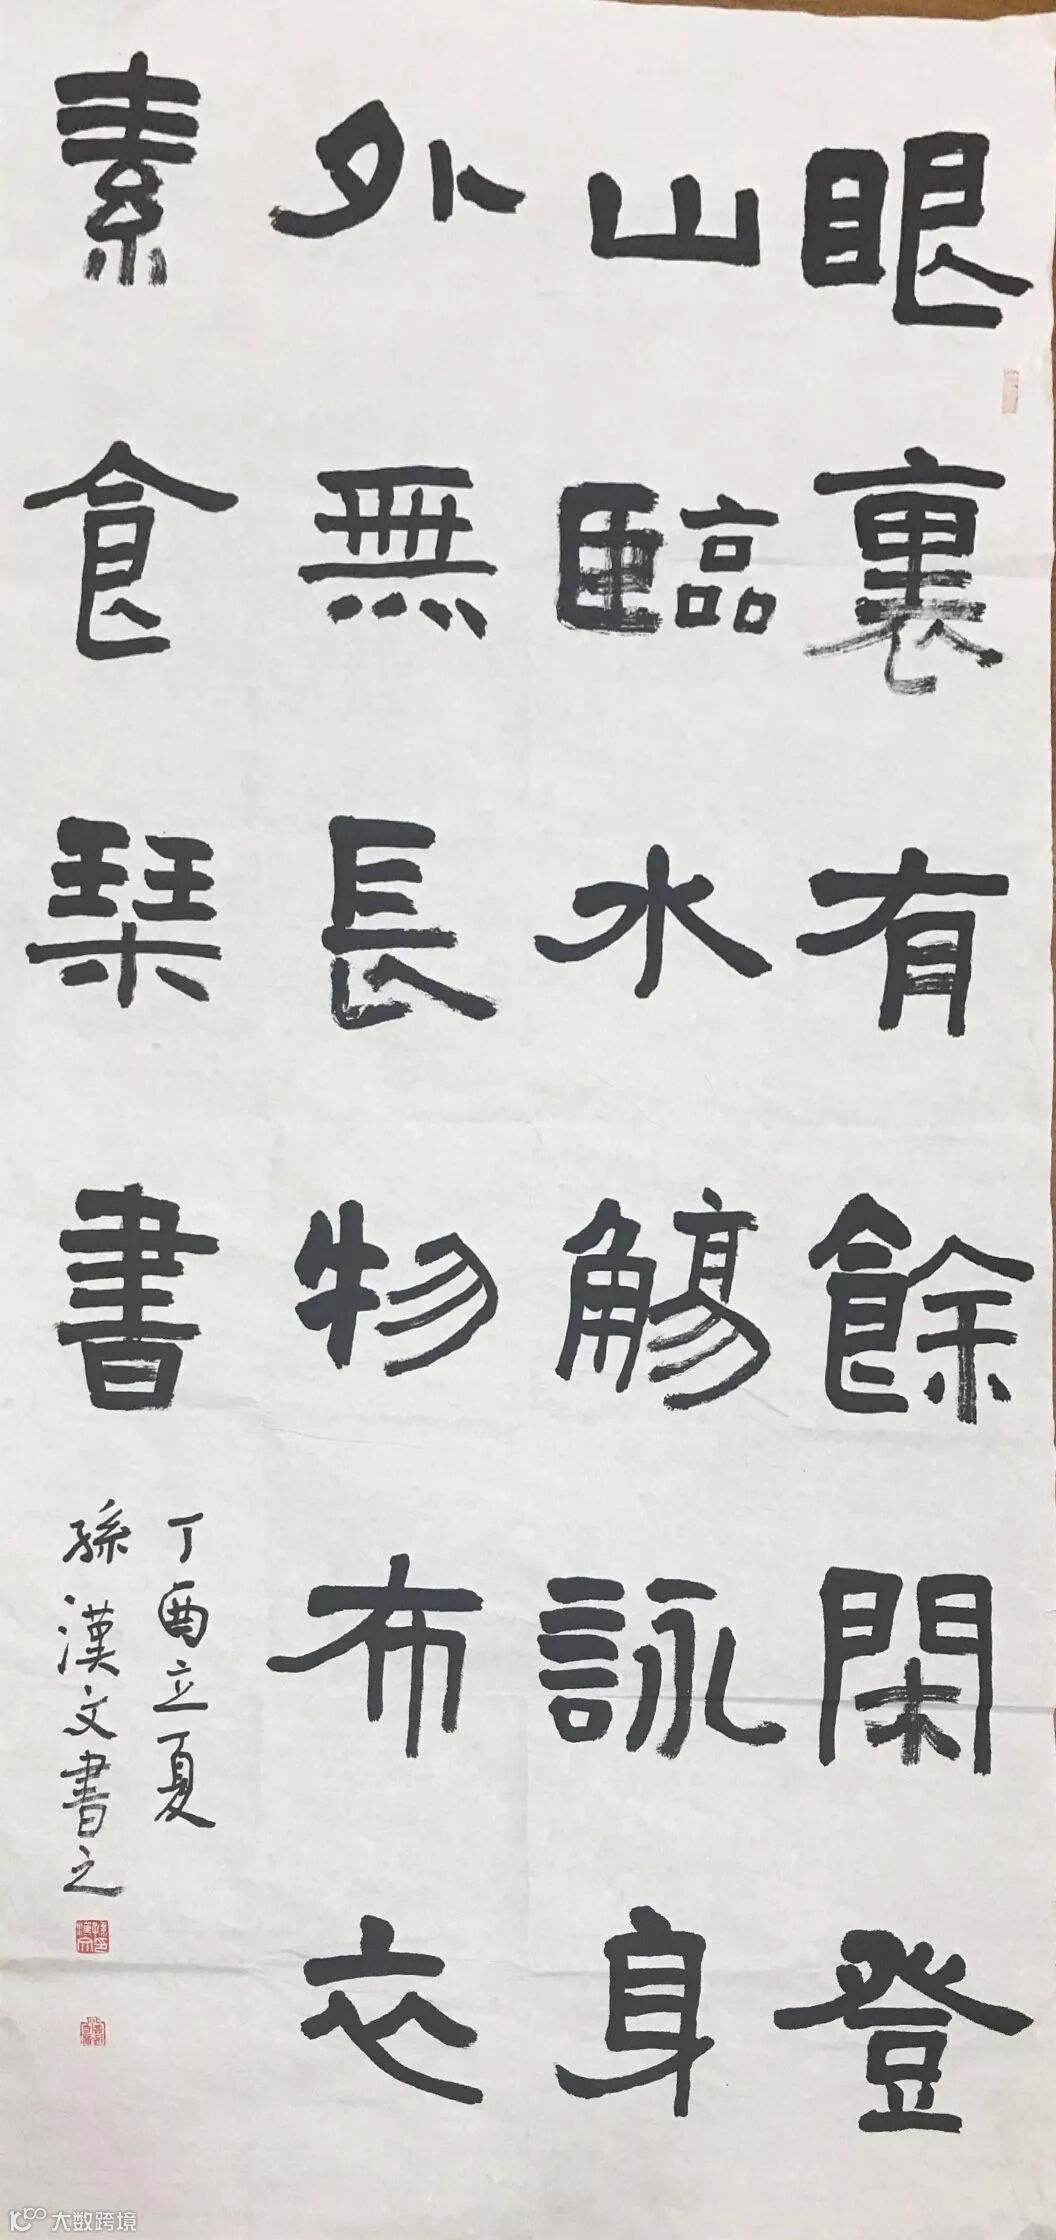 眼裏有餘閑登
山臨水觴詠身
外無長物布衣
素食琹書
丁酉立夏
孫漢文書之
大数跨境